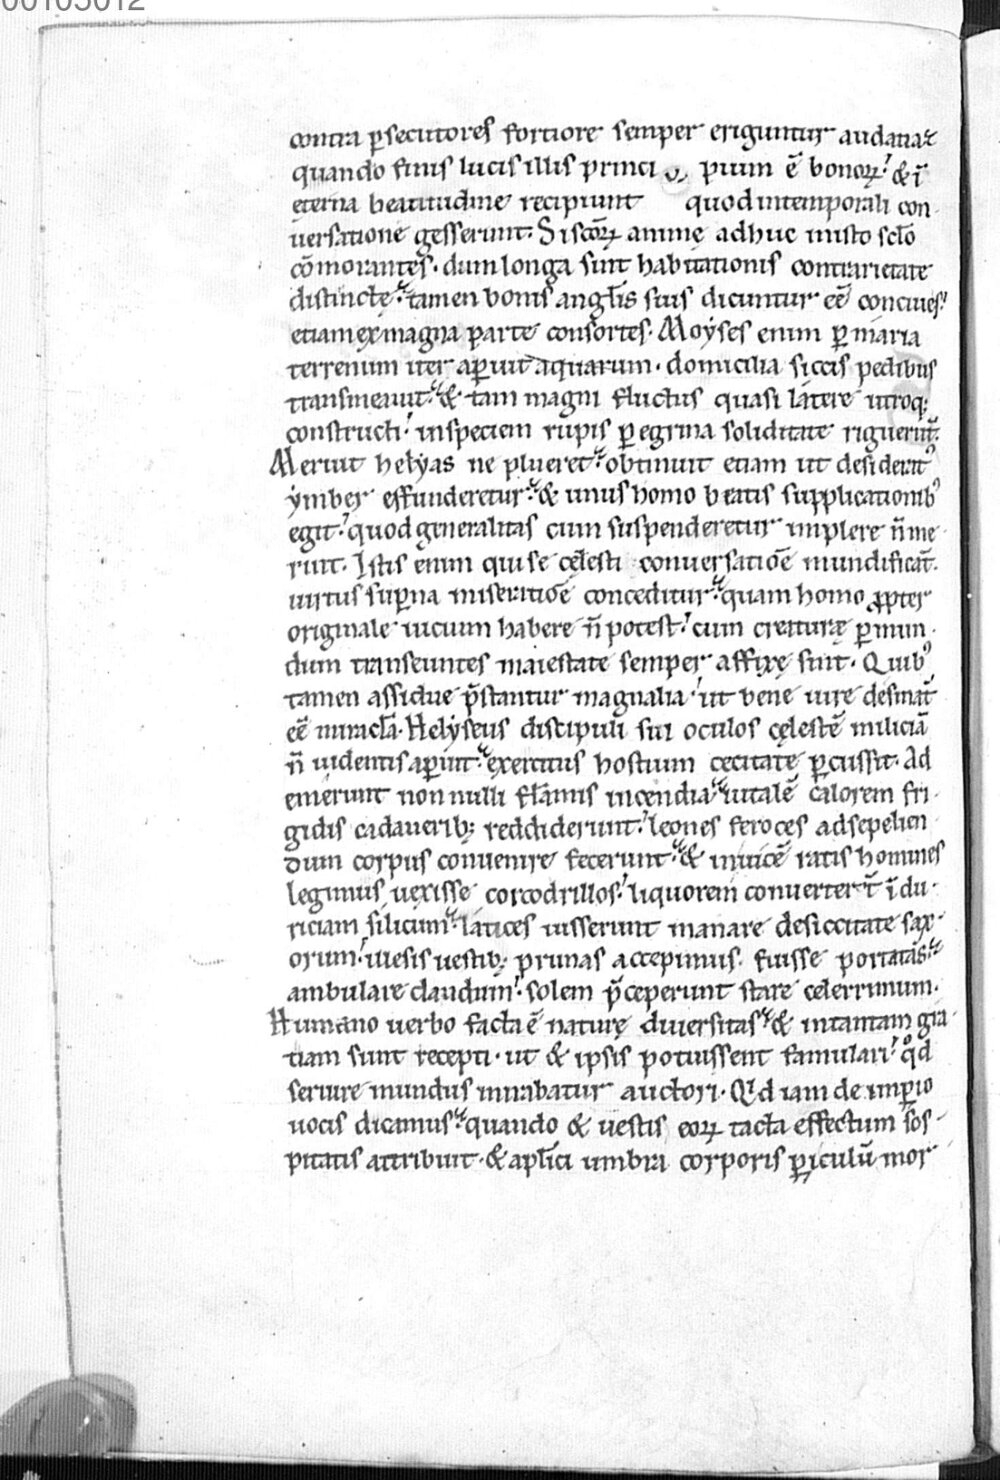 00105012
contra p̱secutores fortiore semper eriguntur audatia:
quando finis lucis illis princi pium ē bonoꝝ. & ī
eterna beatitudine recipiunt quod intemporali con-
uersatione gesserunt. Si scōꝝ animę adhuc in isto sc̄lo
cōmorantes. dum longa sint habitationis contrarietate
distinctę. tamen bonis angl̄is suis dicuntur eē conciues.
etiam ex magna parte consortes. Moẏses enim ꝑ maria
terrenum iter aꝑuit aquarum. domicilia siccis pedibus
transmeauit. & tam magni fluctus quasi látere utroq;
constructi. in speciem rupis ꝑegrina soliditate riguerunt̄.
Meruit helẏas ne plueret. obtinuit etiam ut desiderat᷒
ẏmber effunderetur. & unus homo beatis supplicationib᷒
egit. quod generalitas cum suspenderetur implere ñ me-
ruit. Istis enim qui se cęlesti conuersatiōe mundificāt.
uirtus suꝑna miseritiōe conceditur. quam homo ꝓpter
originale uicium habere ñ potest. cum creaturę ꝑ mun-
dum transeuntes maiestate semper affixę sint. Quib᷒
tamen assidue p̄stantur magnalia. ut bene uire desinat̄
eē miracl̄a. Helẏseus discipuli sui oculos cęlestē miliciā
ñ uidentis aꝑuit. exercitus hostium cecitate ꝑcussit. Ad
emerunt non nulli flāmis incendia. uitalē calorem fri-
gidis cadauerib; reddiderunt. leones feroces ad sepelien-
dum corpus conuenire fecerunt. & inuicē ratis homines
legimus uexisse corcodrillos. liquorem conuerter̄t ī du-
riciam silicum. látices iusserunt manare de siccitate sax-
orum. illesis uestib; prunas accepimus fuisse portatas.
ambulare claudum. solem p̄ceperunt stare celerrimum.
Humano uerbo facta ē naturę diuersitas. & in tantam gra-
tiam sunt recepti. ut & ipsis potuissent famulari. qd̄
seruire mundus mirabatur auctori. Qͥd iam de imꝑio
uocis dicamus. quando & uestis eoꝝ tacta effectum sos-
pitatis attribuit. & apl̄ici umbra corporis ꝑiculū mor-